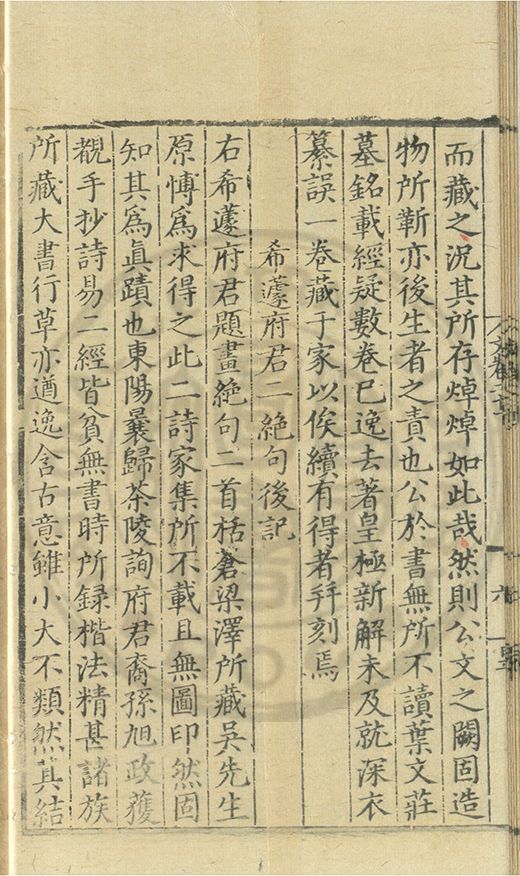 而藏之況其所存焯焯如此哉然則公文之闕固造
物所靳亦後生者之責也公於書無所不讀葉文莊
墓銘載經疑數卷已逸去著皇極新解未及就深衣
纂誤一卷藏于家以俟續有得者拜刻焉
希蘧府君二絶句後記
右希蘧府君題畫絶句二首栝蒼梁澤所藏吳先生
原愽爲求得之此二詩家集所不載且無圖印然固
知其爲眞蹟也東陽曩歸茶陵詢府君裔孫旭政獲
觀手抄詩易二經皆貧無書時所録楷法精甚諸族
所藏大書行草亦遒逸含古意雖小大不類然其結